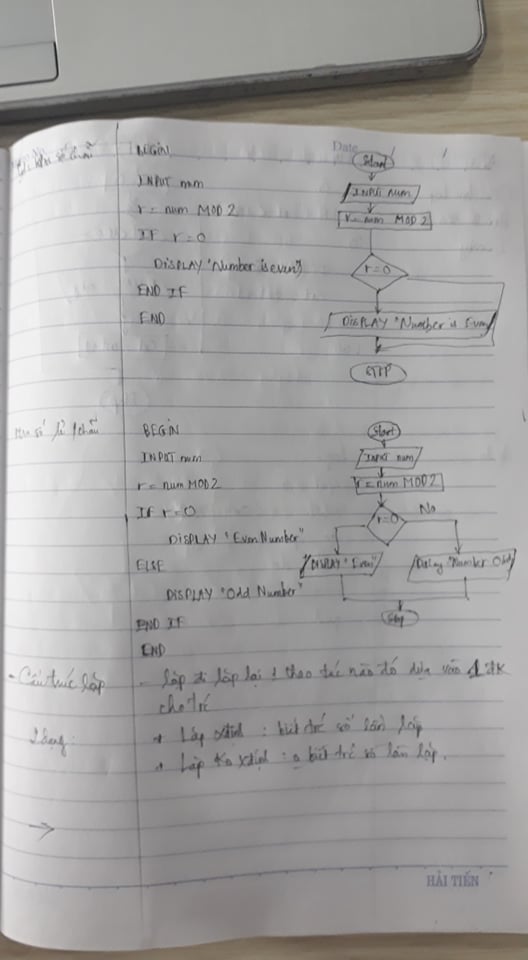 Date
số chẵn
BEGIN
INPUT num
r = num MOD 2
IF r=0
DISPLAY "Number is even"
END IF
END
Start
INPUT Num
r = num MOD 2
r=0
DISPLAY "Number is Even
STOP
số lẻ / chẵn
BEGIN
INPUT num
r = num MOD 2
IF r=0
DISPLAY "Even Number"
ELSE
DISPLAY "Odd Number"
END IF
END
Start
INPUT num
r = num MOD 2
r=0
No
DISPLAY "Even"
"Number Odd
Stop
- Cấu trúc lặp
- lặp đi lặp lại 1 thao tác nào đó dựa vào 1 đk
cho trc
2 dạng:
+ Lặp xđịnh : biết trc số lần lặp
+ Lặp ko xđịnh : o biết trc số lần lặp.
HẢI TIẾN